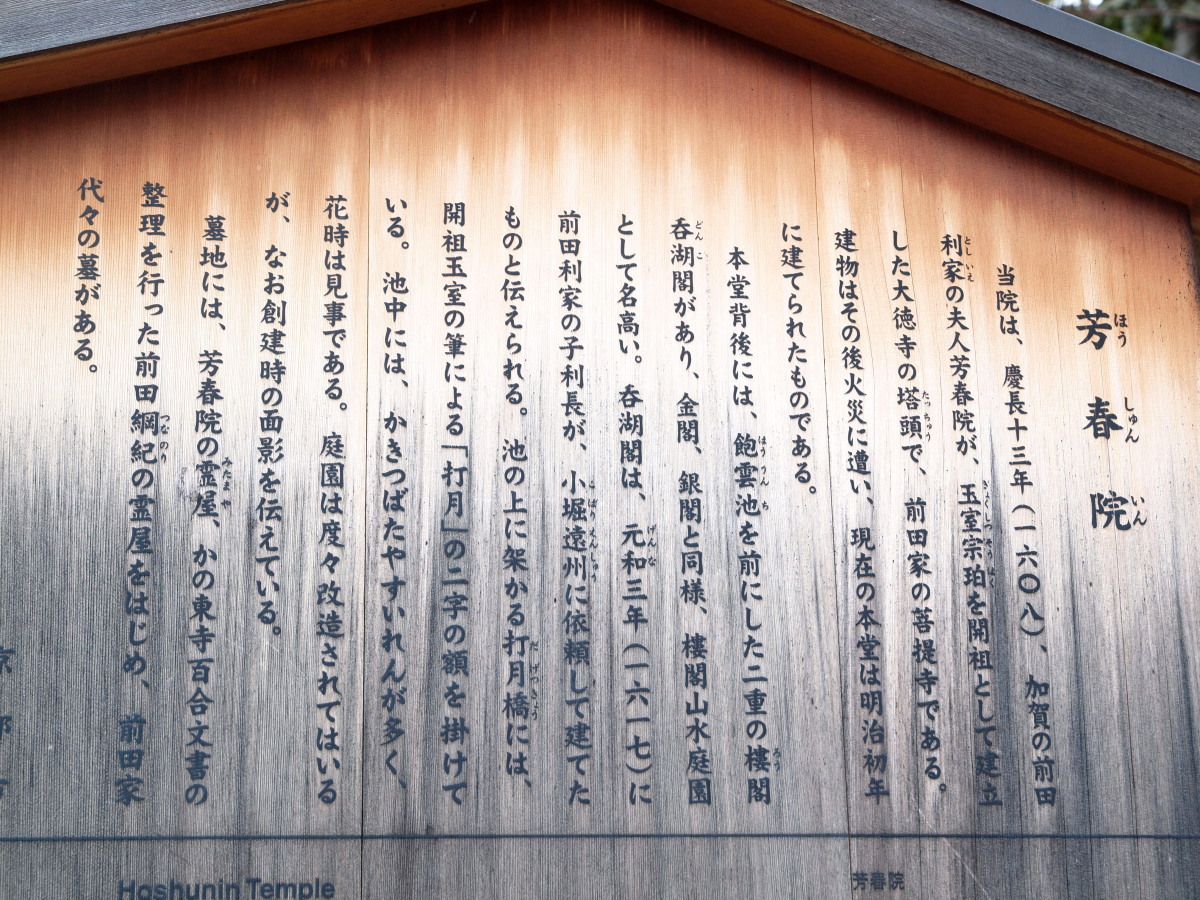 芳春院
ほう しゅん いん
当院は、慶長十三年(一六〇八)、加賀の前田
利家の夫人芳春院が、玉室宗珀を開祖として建立
とし いえ ぎょくしつ そう はく
した大徳寺の塔頭で、前田家の菩提寺である。
たっちゅう
建物はその後火災に遭い、現在の本堂は明治初年
に建てられたものである。
本堂背後には、飽雲池を前にした二重の樓閣
ほう うん ち ろう
呑湖閣があり、金閣、銀閣と同様、樓閣山水庭園
どん こ
として名高い。呑湖閣は、元和三年(一六一七)に
げんな
前田利家の子利長が、小堀遠州に依頼して建てた
こ ぼり えんしゅう
ものと伝えられる。池の上に架かる打月橋には、
だ げつ きょう
開祖玉室の筆による「打月」の二字の額を掛けて
いる。池中には、かきつばたやすいれんが多く、
花時は見事である。庭園は度々改造されてはいる
が、なお創建時の面影を伝えている。
墓地には、芳春院の霊屋、かの東寺百合文書の
みたまや
整理を行った前田綱紀の霊屋をはじめ、前田家
つなのり
代々の墓がある。
京都市
Hoshunin Temple
芳春院